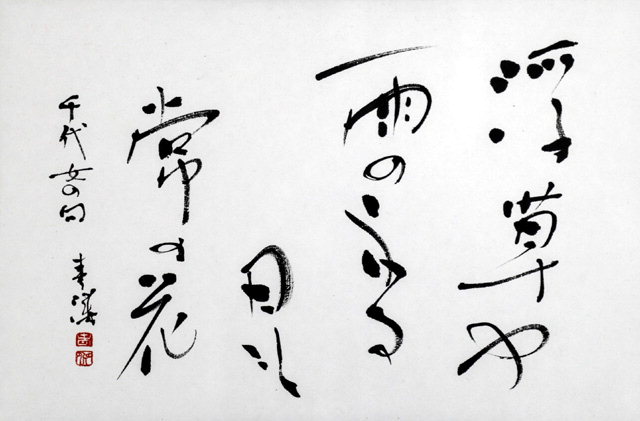 浮草や
雨のふる
日も
常の花
千代女の句